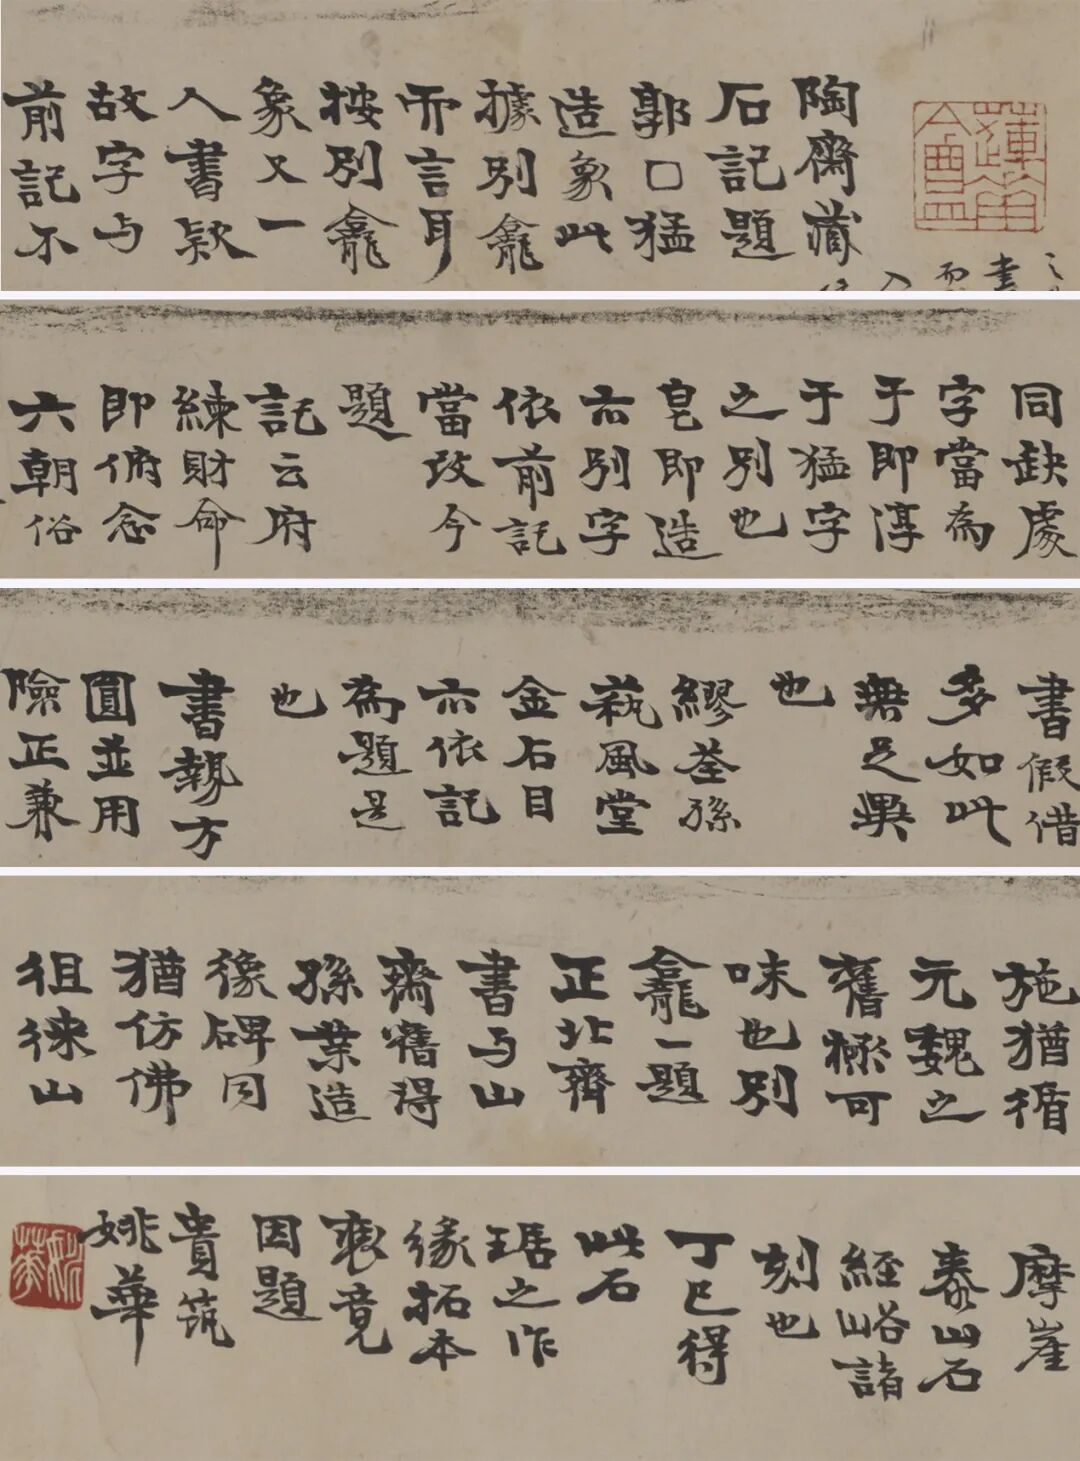 陶齋藏
石記題
郭口猛
造象此
據別龕
而言耳
按別龕
象又一
人書款
故字与
前記不
同缺處
字當為
于即淳
于猛字
之別也
皃即造
亦別字
依前記
當改今
題
記云府
練財命
即俯念
六朝俗
書假借
多如此
無足異
也
繆荃孫
蓺風堂
金石目
亦依記
為題是
也
書勢方
圓並用
險正兼
施猶循
元魏之
舊極可
味也別
龕一題
正北齊
書与山
齋舊得
孫業造
像碑同
猶仿佛
徂徠山
摩崖
泰山石
經峪諸
刻也
丁巳得
此石
琚之作
緣拓本
裝竟
因題
貴筑
姚華
姚華